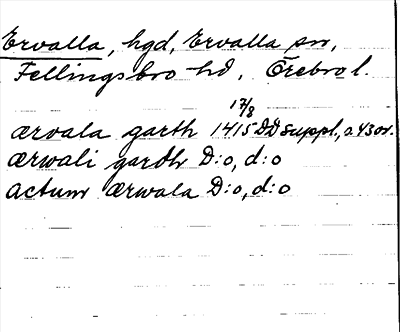 Ervalla, hgd, Ervalla sn,
Fellingsbro hd, Örebro l.
17/8
ærvala garth 1415 DD suppl, s 43 or.
ærwali gardh D:o, d:o
actum ærwala D:o, d:o